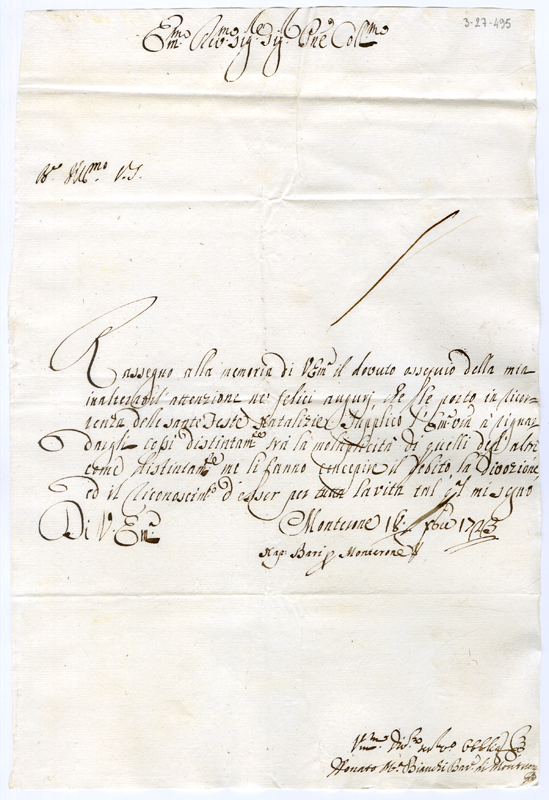 3-27-495
Em.mo e Rev.mo Sig.re Sig.re Pne Coll.mo
Rassegno alla memoria di V Em.a il dovuto ossequio della mia
inalterabil attenzione ne' felici augurj che le porto in ricor-
renza delle sante feste Natalizie. Supplico l'Em.a V.ra a riguar-
dargli così distintam.te frà la moltiplicità di quelli degl'altri
come distintam.te me li fanno concepire il debito, la divozione
ed il riconoscim.to d'esser per tutta la vita tal q.l mi segno
Di V. Em.a
Monterone 18. Xbre 1723
Nap. Bari p Monterone
Um.mo Div.mo
Donato M.a Bianchi Bar.e di Monterone